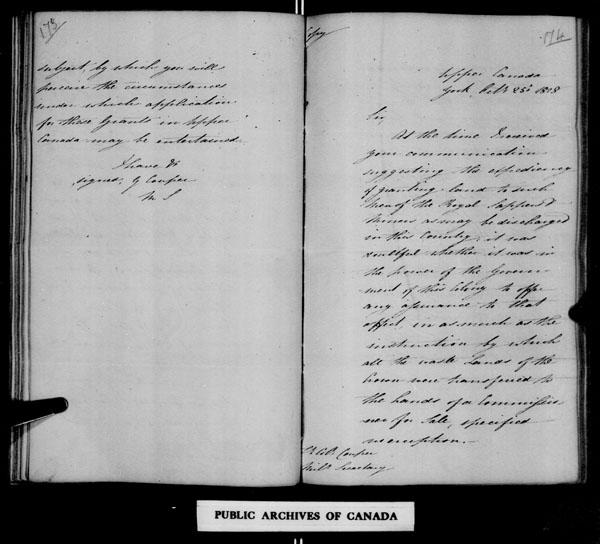 173
subject, by which you will
perceive the circumstances
under which application
for those Grants in Upper
Canada may be entertained.
I have &c
signed, G Couper
M S
174
Copy
Upper Canada
York Octr 25 1828
Sir
At the time I received
your communication
suggesting the expediency
of granting land to such
Men of the Royal Sappers &
Miners as may be discharged
in this Country, it was
doubtful whether it was in
the power of the Govern-
ment of this Colony to offer
any assurance to that
effect, in as much as the
instruction by which
all the waste Lands of the
Crown were transferred to
the hands of a Commissio
ner for Sale, specified
no exemption.—
Couper
Mily Secretary
PUBLIC ARCHIVES OF CANADA